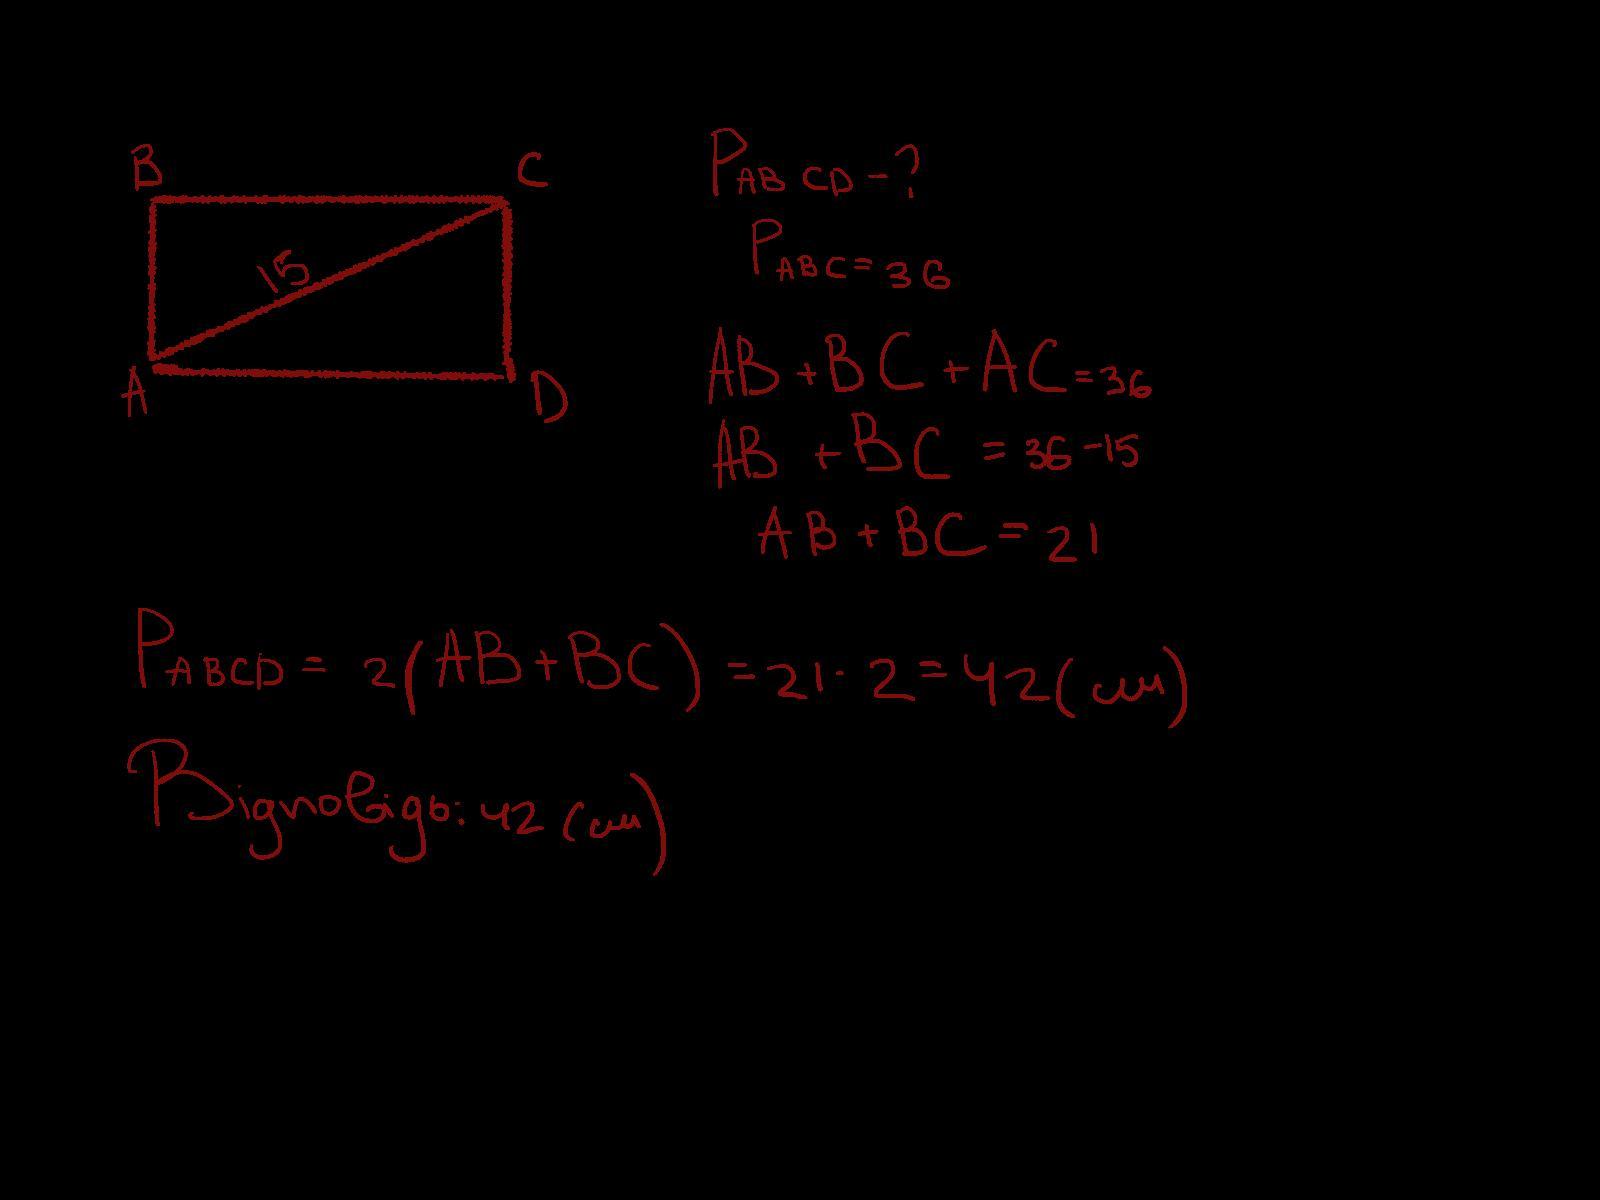 B
C
15
A
D
P ABCD - ?
P ABC = 36
AB + BC + AC = 36
AB + BC = 36 - 15
AB + BC = 21
P ABCD = 2(AB + BC) = 21 · 2 = 42 (см)
Відповідь: 42 (см)